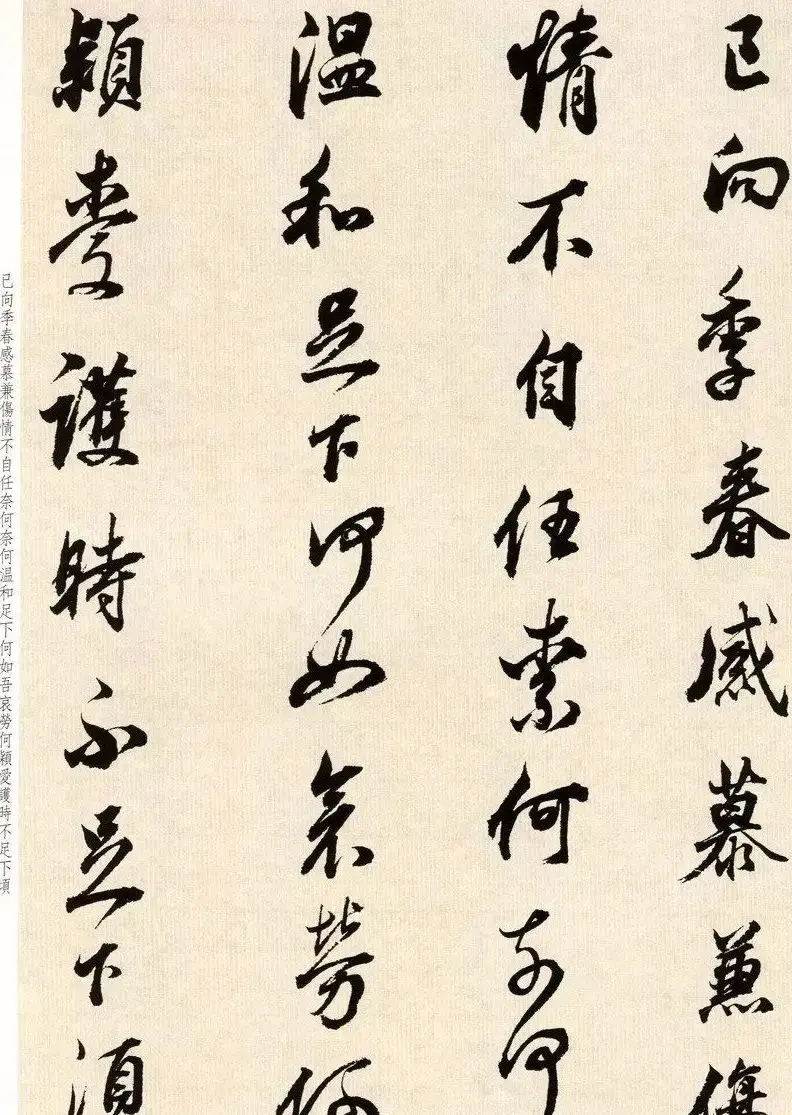 已向季春感慕兼傷
情不自任柰何奈何
温和足下何如哀勞何
穎愛護時不足下須
已向季春感慕兼傷情不自任奈何奈何温和足下何如吾哀勞何穎愛護時不足下頃